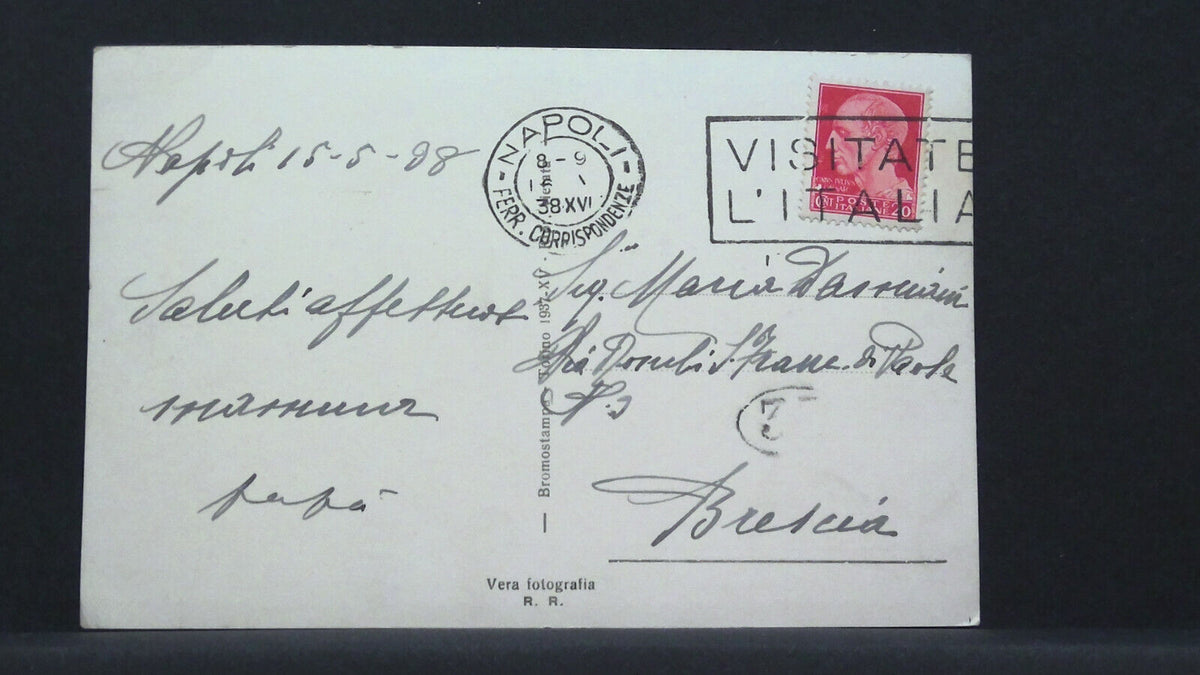 Napoli 15-5-38
Saluti affettuosi
mamma
papà
NAPOLI
8-9
38 XVI
FERR. CORRISPONDENZE
VISITATE
L'ITALIA
POSTE
ITALIANE
CENT 20
Sig. Maria
Via S. Franc. di Paola
N. 3
Brescia
— Bromostampa - Torino 1937-XV.
Vera fotografia
R. R.